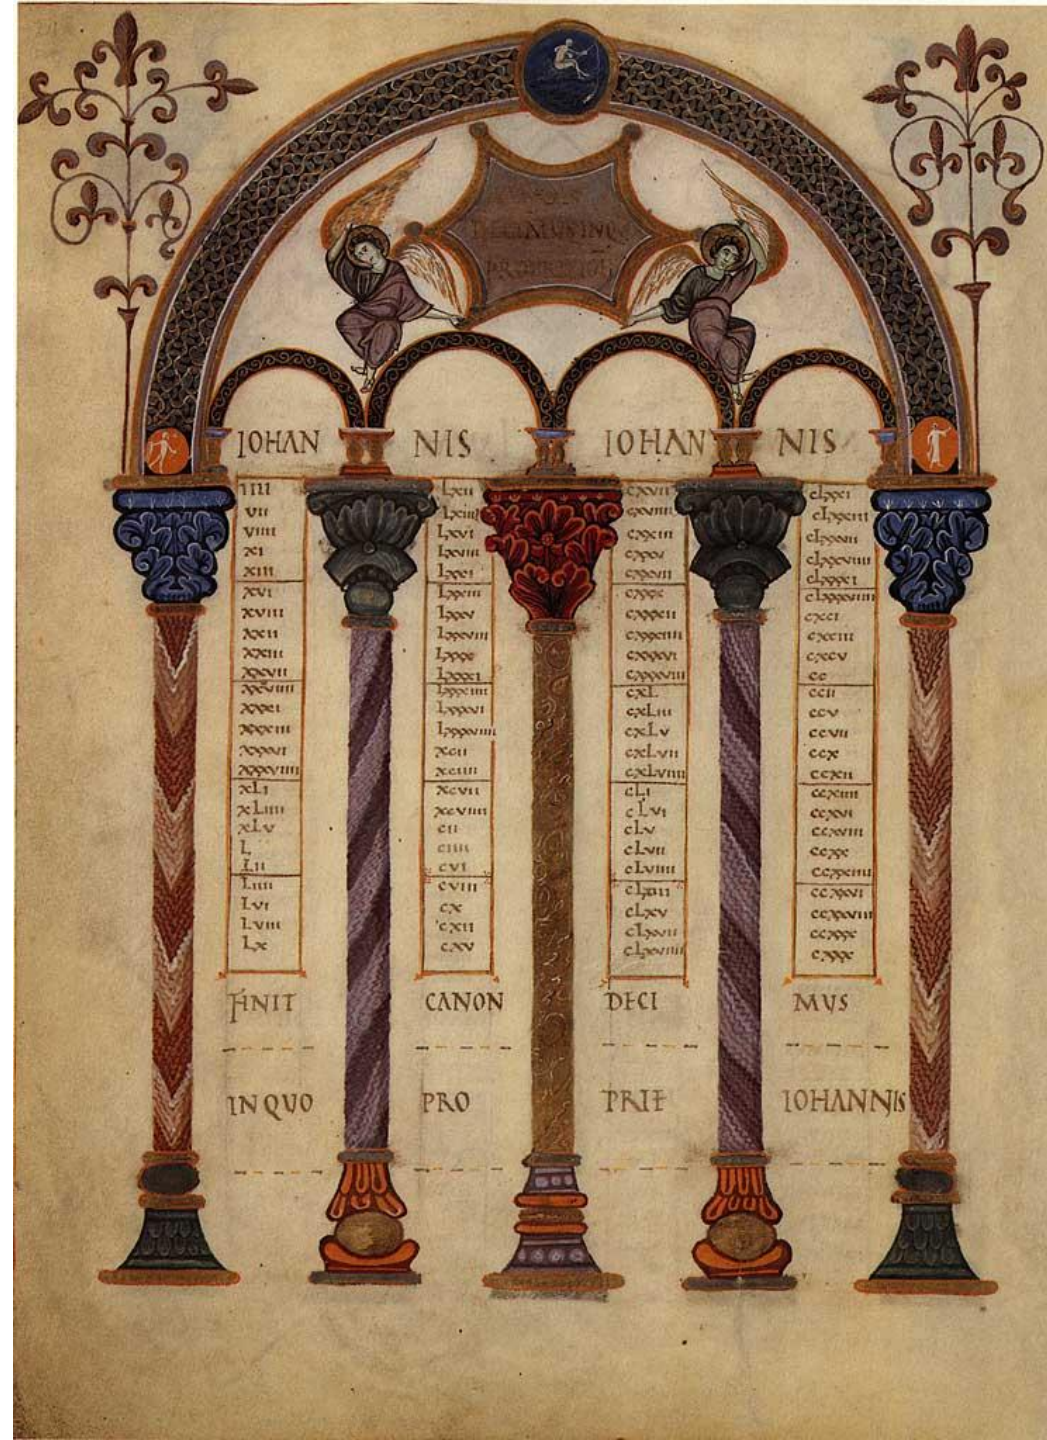 DECIMUS INQ
IOHAN NIS IOHAN NIS
IIII
VII
VIIII
XI
XIII
XVI
XVIII
XXII
XXIII
XXVII
XXVIIII
XXXI
XXXIII
XXXVI
XXXVIIII
XLI
XLIIII
XLV
L
LII
LIIII
LVI
LVIII
LX
LXII
LXIIII
LXVI
LXVIII
LXXI
LXXIII
LXXV
LXXVIII
LXXX
LXXXI
LXXXIIII
LXXXVI
LXXXVIIII
XCII
XCIIII
XCVII
XCVIIII
CII
CIIII
CVI
CVIII
CX
CXII
CXV
CXVII
CXVIIII
CXXIII
CXXV
CXXVII
CXXX
CXXXII
CXXXIIII
CXXXVI
CXXXVIII
CXL
CXLIII
CXLV
CXLVII
CXLVIIII
CLI
CLVI
CLV
CLVII
CLVIIII
CLXIII
CLXV
CLXVII
CLXVIIII
CLXXI
CLXXIII
CLXXVII
CLXXVIIII
CLXXXI
CLXXXVIIII
CXCI
CXCIII
CXCV
CC
CCII
CCV
CCVII
CCX
CCXII
CCXIIII
CCXVI
CCXVIII
CCXX
CCXXIIII
CCXXVI
CCXXVIII
CCXXX
CXXX
FINIT CANON DECI MUS
IN QUO PRO PRIE IOHANNIS